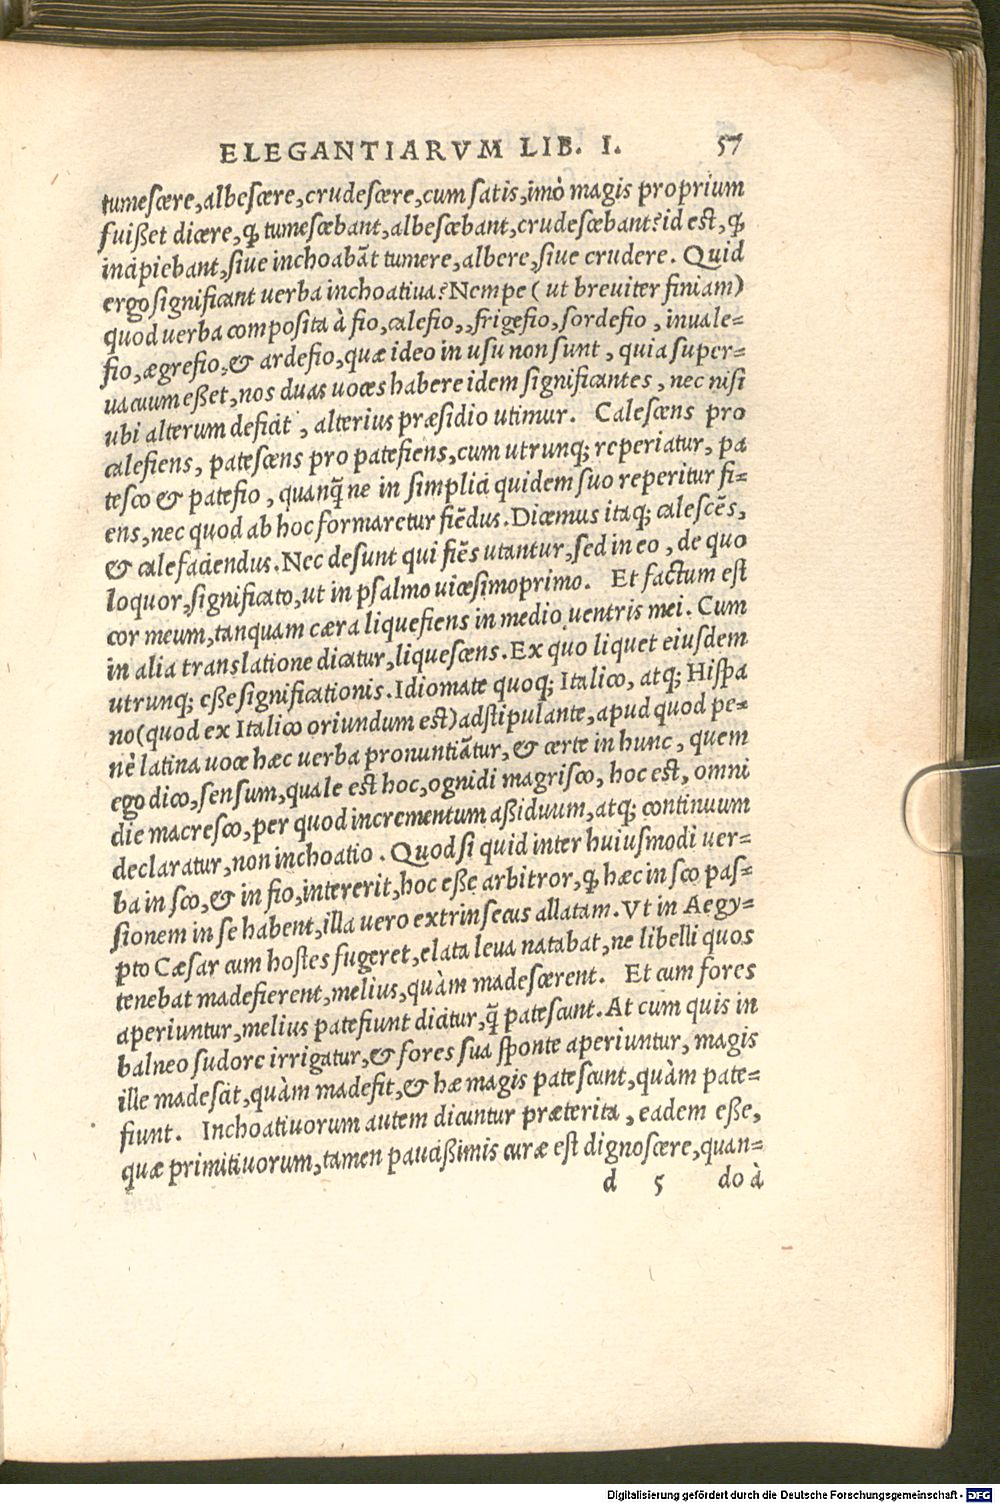 ELEGANTIARVM LIB. I. 57
tumeſcere, albeſcere, crudeſcere, cum ſatis, imò magis proprium
fuiſſet dicere, ꝙ tumeſcebant, albeſcebant, crudeſcebant? id eſt, ꝙ
incipiebant, ſiue inchoabãt tumere, albere, ſiue crudere. Quid
ergo ſignificant uerba inchoatiua? Nempe ( ut breuiter finiam)
quod uerba compoſita à fio, calefio,, frigefio, ſordefio, inuale=
fio, ægrefio, & ardefio, quæ ideo in uſu non ſunt, quia ſuper=
uacuum eſſet, nos duas uoces habere idem ſignificantes, nec niſi
ubi alterum deficit, alterius præſidio utimur. Caleſcens pro
calefiens, pateſcens pro patefiens, cum utrunq; reperiatur, pa
teſco & patefio, quanq̃ ne in ſimplici quidem ſuo reperitur fi=
ens, nec quod ab hoc formaretur fiẽdus. Dicemus itaq; caleſcẽs,
& calefaciendus. Nec deſunt qui fiẽs utantur, ſed in eo, de quo
loquor, ſignificato, ut in pſalmo uiceſimoprimo. Et factum eſt
cor meum, tanquam cæra liquefiens in medio uentris mei. Cum
in alia translatione dicatur, liqueſcens. Ex quo liquet eiuſdem
utrunq; eſſe ſignificationis. Idiomate quoq; Italico, atq; Hiſpa
no (quod ex Italico oriundum eſt) adſtipulante, apud quod pe=
nè latina uoce hæc uerba pronuntiãtur, & certe in hunc, quem
ego dico, ſenſum, quale eſt hoc, ognidi magriſco, hoc eſt, omni
die macreſco, per quod incrementum aſſiduum, atq; continuum
declaratur, non inchoatio. Quod ſi quid inter huiuſmodi uer=
ba in ſco, & in fio, intererit, hoc eſſe arbitror, ꝙ hæc in ſco paſ=
ſionem in ſe habent, illa uero extrinſecus allatam. Vt in Aegy=
pto Cæſar cum hoſtes fugeret, elata leua natabat, ne libelli quos
tenebat madefierent, melius, quàm madeſcerent. Et cum fores
aperiuntur, melius patefiunt dicitur, q̃ pateſcunt. At cum quis in
balneo ſudore irrigatur, & fores ſua ſponte aperiuntur, magis
ille madeſcit, quàm madefit, & hæ magis pateſcunt, quàm pate=
fiunt. Inchoatiuorum autem dicuntur præterita, eadem eſſe,
quæ primitiuorum, tamen pauciſſimis curæ eſt dignoſcere, quan=
d 5 do à
Digitalisierung gefördert durch die Deutsche Forschungsgemeinschaft - DFG